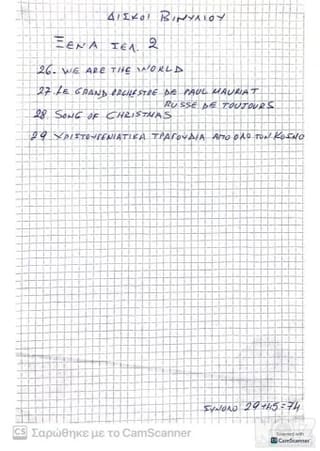 ΔΙΣΚΟΙ ΒΙΝΥΛΙΟΥ
ΞΕΝΑ ΣΕΛ. 2
26. WE ARE THE WORLD
27. LE GRAND ORCHESTRE DE PAUL MAURIAT
RUSSE DE TOUJOURS
28. SONG OF CHRISTMAS
29 ΧΡΙΣΤΟΥΓΕΝΙΑΤΙΚΑ ΤΡΑΓΟΥΔΙΑ ΑΠΟ ΟΛΟ ΤΟΝ ΚΟΣΜΟ
ΣΥΝΟΛΟ 29+45=74
CS Σαρώθηκε με το CamScanner
Scanned with
CamScanner